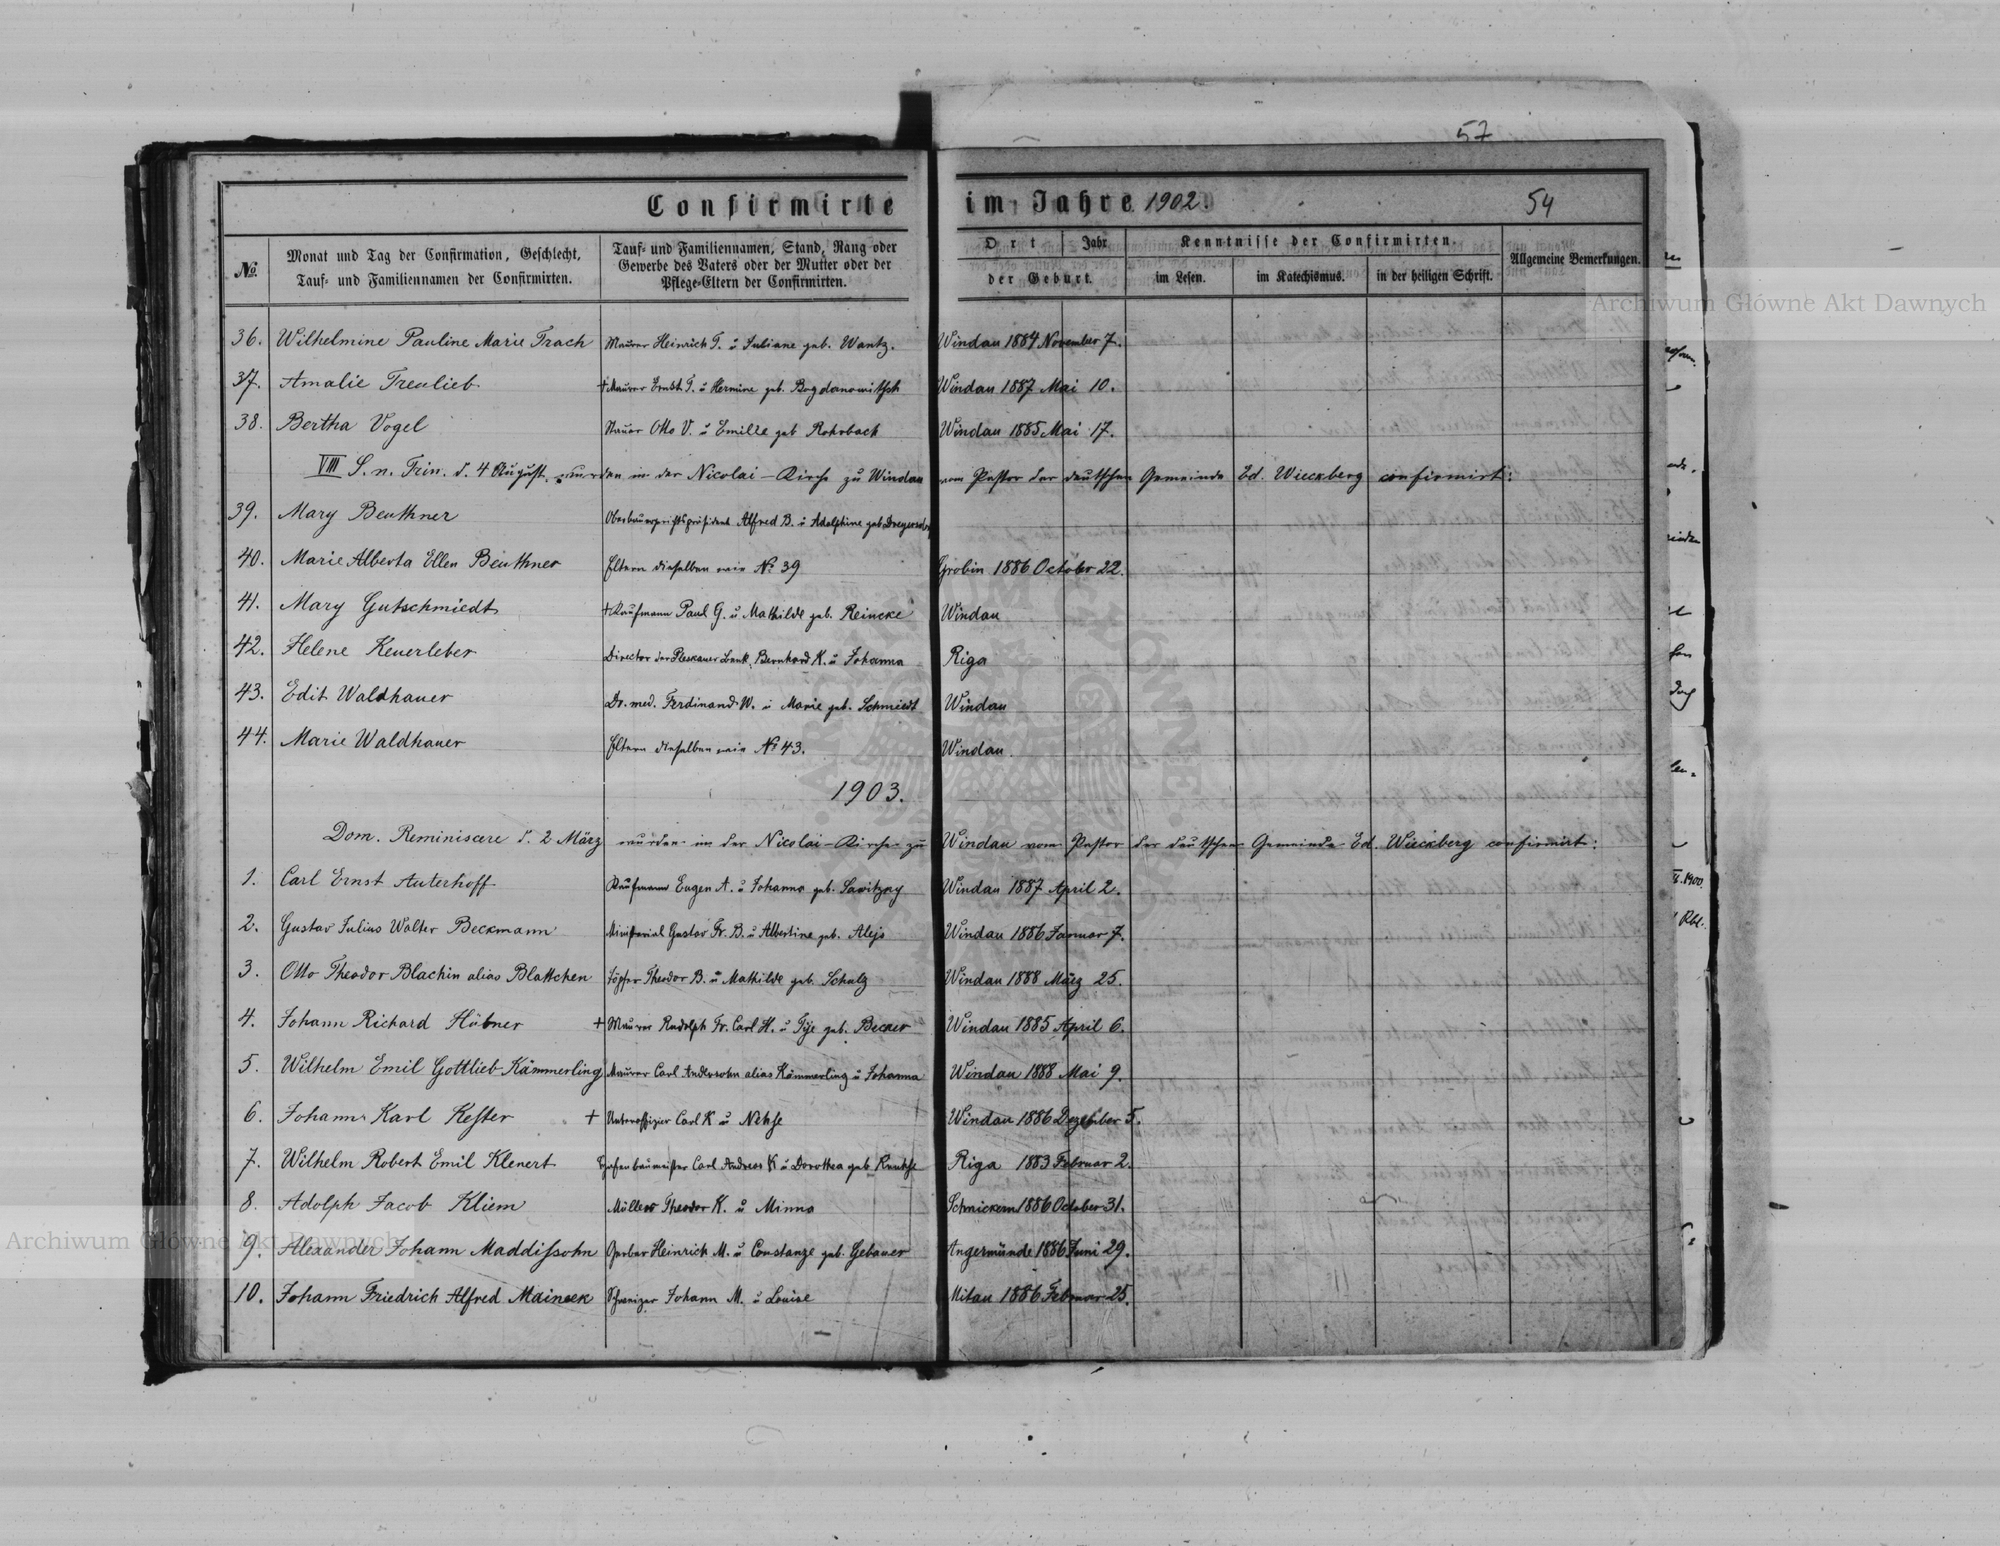 57
Confirmirte im Jahre 1902. 54
No. Monat und Tag der Confirmation, Geschlecht, Tauf- und Familiennamen, Stand, Rang oder Ort Jahr Kenntnisse der Confirmirten. Allgemeine Bemerkungen.
Tauf- und Familiennamen der Confirmirten. Gewerbe des Vaters oder der Mutter oder der
Pflege-Eltern der Confirmirten. der Geburt. im Lesen. im Katechismus. in der heiligen Schrift.
36. Wilhelmine Pauline Marie Trach Maurer Heinrich T. u Juliane geb. Wantz. Windau 1884 November 7.
37. Amalie Treulieb + Maurer Ernst T. u Hermine geb. Bogdanowitsch Windau 1887 Mai 10.
38. Bertha Vogel Otto V. u Emilie geb Rohrbach Windau 1885 Mai 17.
VIII S. n. Trin. d. 4 August wurden in der Nicolai-Kirche zu Windau vom Pastor der deutschen Gemeinde Ed. Wieckberg confirmirt:
39. Mary Beuthner Alfred B. u Adolphine geb
40. Marie Alberta Ellen Beuthner Eltern dieselben wie No 39 Grobin 1886 October 22.
41. Mary Gutschmiedt + Kaufmann Paul G. u Mathilde geb. Reincke Windau
42. Helene Keuerleber Director der Pleskauer Bank, Bernhard K. u Johanna Riga
43. Edit Waldhauer Dr. med. Ferdinand W. u Marie geb. Schmiedt Windau
44. Marie Waldhauer Eltern dieselben wie No 43. Windau.
1903.
Dom. Reminiscere d. 2 März wurden in der Nicolai-Kirche zu Windau vom Pastor der deutschen Gemeinde Ed. Wieckberg confirmirt:
1. Carl Ernst Auterhoff Kaufmann Eugen A. u Johanna geb. Sawitzky Windau 1887 April 2.
2. Gustav Julius Walter Beckmann Ministerial Gustav Fr. B. u Albertine geb. Alejs Windau 1886 Januar 7.
3. Otto Theodor Blachin alias Blattchen Töpfer Theodor B. u Mathilde geb. Schulz Windau 1888 März 25.
4. Johann Richard Hübner + Maurer Rudolph Fr. Carl H. u geb. Becker Windau 1885 April 6.
5. Wilhelm Emil Gottlieb Kämmerling Maurer Carl Andersohn alias Kämmerling u Johanna Windau 1888 Mai 9.
6. Johann Karl Kester + Unteroffizier Carl K u Windau 1886 Dezember 5.
7. Wilhelm Robert Emil Klenert Hafenbaumeister Carl Andreas K u Dorothea geb Riga 1883 Februar 2.
8. Adolph Jacob Kliem Müller Theodor K. u Minna Schnickern 1886 October 31.
9. Alexander Johann Maddissohn Gerber Heinrich M. u Constanze geb. Gebauer Angermünde 1886 Juni 29.
10. Johann Friedrich Alfred Maineek Johann M. u Louise Mitau 1886 Februar 25.
Archiwum Główne Akt Dawnych
Archiwum Główne Akt Dawnych